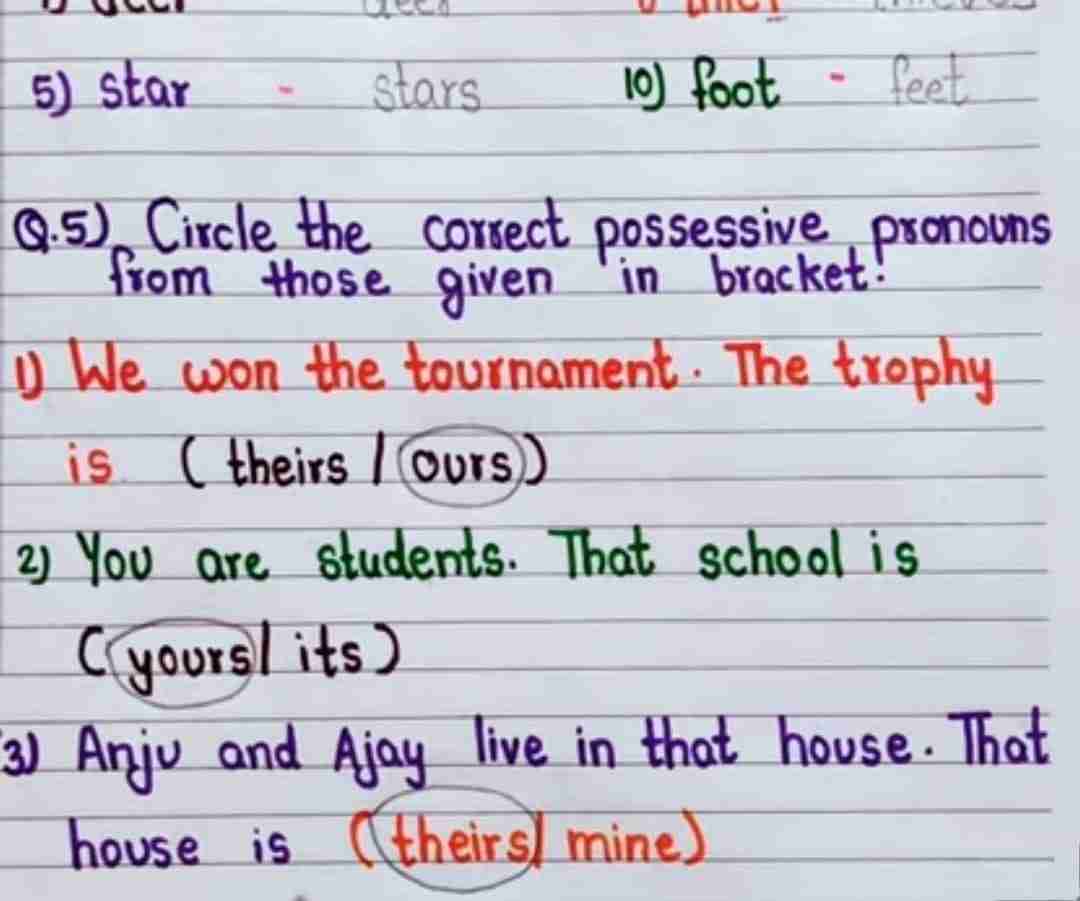 deer deer thief thieves
5) star - stars 10) foot - feet
Q.5) Circle the correct possessive pronouns
from those given in bracket!
1) We won the tournament. The trophy
is (theirs / ours)
2) You are students. That school is
(yours / its)
3) Anju and Ajay live in that house. That
house is (theirs / mine)